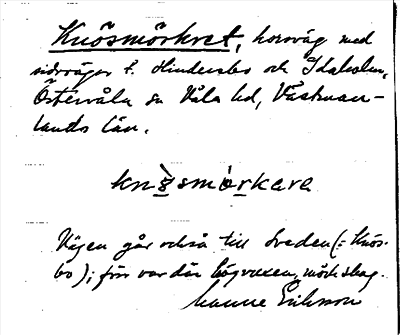 Knösmörkret, korsväg med
sidovägar t. Hindersbo och Idaholm,
Östervåla sn Våla hd, Västman-
lands län.
knö̀smörkərə
Vägen går också till Sveden (= Knös-
bo); förr var där högvuxen, mörk skog.
Manne Eriksson